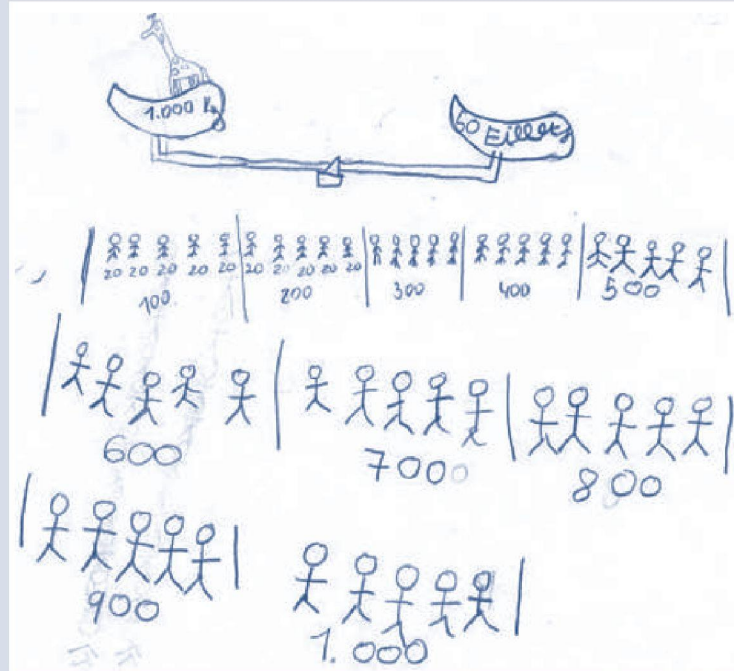 1.000 Kg 50 Eillets
20 20 20 20 20 20 20 20 20 20
100 200 300 400 500
600 7000 800
900 1.000